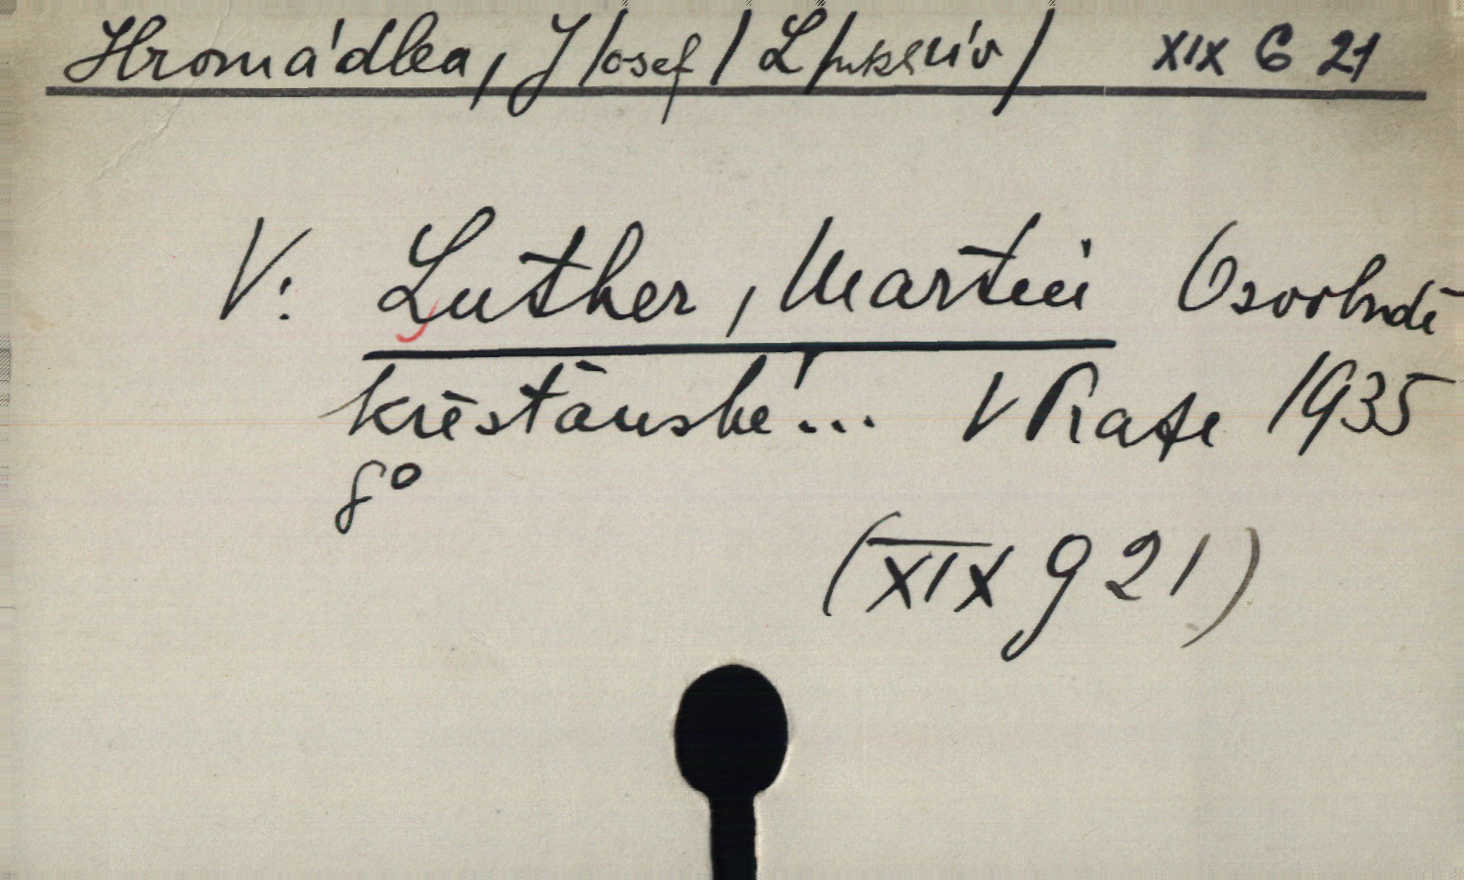 Hromádka, J/osef/ L/ukslův/ XIX G 21
V: Luther, Martin O svobodě
křesťanské... V Praze 1935
8°
(XIX g 21)